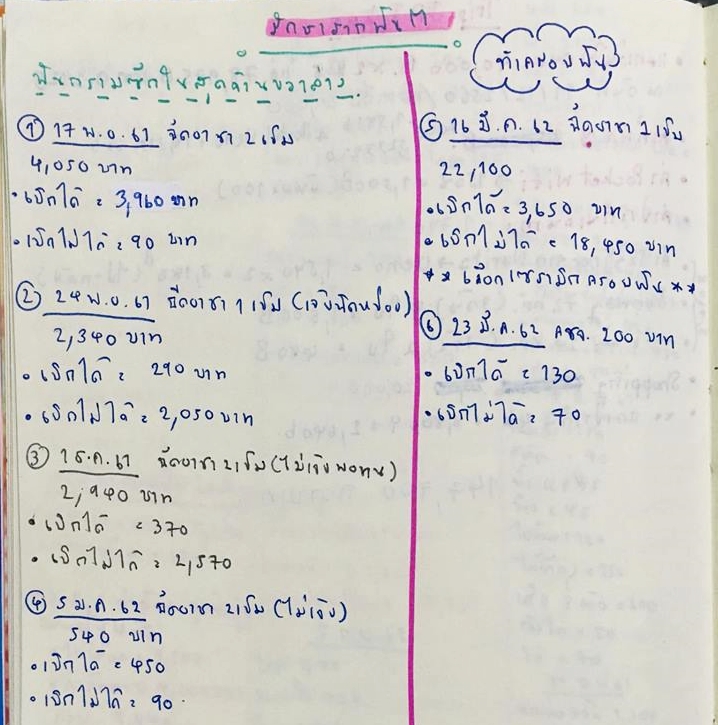 รักษารากฟัน M
ฟันกรามซี่ในสุดด้านขวาล่าง.
① 17 พ.ย. 61 ฉีดยาชา 2 เข็ม
4,050 บาท
• เบิกได้ = 3,960 บาท
• เบิกไม่ได้ = 90 บาท
② 24 พ.ย. 61 ฉีดยาชา 1 เข็ม (เจ็บนิดหน่อย)
2,340 บาท
• เบิกได้ = 290 บาท
• เบิกไม่ได้ = 2,050 บาท
③ 1 ธ.ค. 61 ฉีดยาชา 2 เข็ม (ไม่เจ็บพอทน)
2,940 บาท
• เบิกได้ = 370
• เบิกไม่ได้ = 2,570
④ 5 ม.ค. 62 ฉีดยาชา 2 เข็ม (ไม่เจ็บ)
540 บาท
• เบิกได้ = 450
• เบิกไม่ได้ = 90.
ทำครอบฟัน
⑤ 16 มี.ค. 62 ฉีดยาชา 2 เข็ม
22,100
• เบิกได้ = 3,650 บาท
• เบิกไม่ได้ = 18,450 บาท
** เลือกเซรามิกครอบฟัน **
⑥ 23 มี.ค. 62 คชจ. 200 บาท
• เบิกได้ = 130
• เบิกไม่ได้ = 70